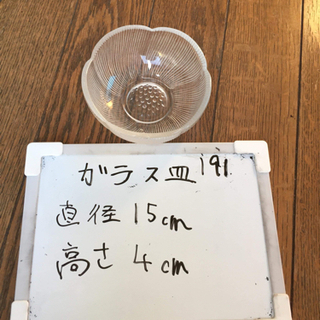 ガラス皿 191
直径 15cm
高さ 4cm